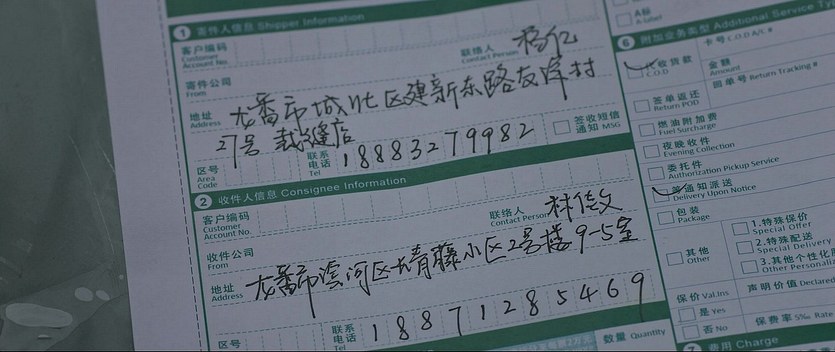 1 寄件人信息 Shipper Information
客户编码
Customer
Account No.
联络人
Contact Person
杨亿
寄件公司
From
地址
Address
龙番市城北区建新东路友岸村
27号 裁缝店
区号
Area
Code
联系
电话
Tel
18883279982
签收短信
通知 MSG
2 收件人信息 Consignee Information
客户编码
Customer
Account No.
联络人
Contact Person
林信文
收件公司
From
地址
Address
龙番市滨河区长青藤小区2号楼 9-5室
区号
联系
电话
Tel
18871285469
数量 Quantity
A标
A Label
6 附加业务类型 Additional Service Ty
代收货款
C.O.D
卡号 C.O.D A/C #
金额
Amount
签单返还
Return POD
回单号 Return Tracking #
燃油附加费
Fuel Surcharge
夜晚收件
Evening Collection
委托件
Authorization Pickup Service
等通知派送
Delivery Upon Notice
包装
Package
其他
Other
1.特殊保价
Special Offer
2.特殊配送
Special Delivery
3.其他个性化
Other Personaliz
保价 Val.Ins
声明价值 Declared
是 Yes
否 No
保费率 5‰ Rate
7 费用 Charge